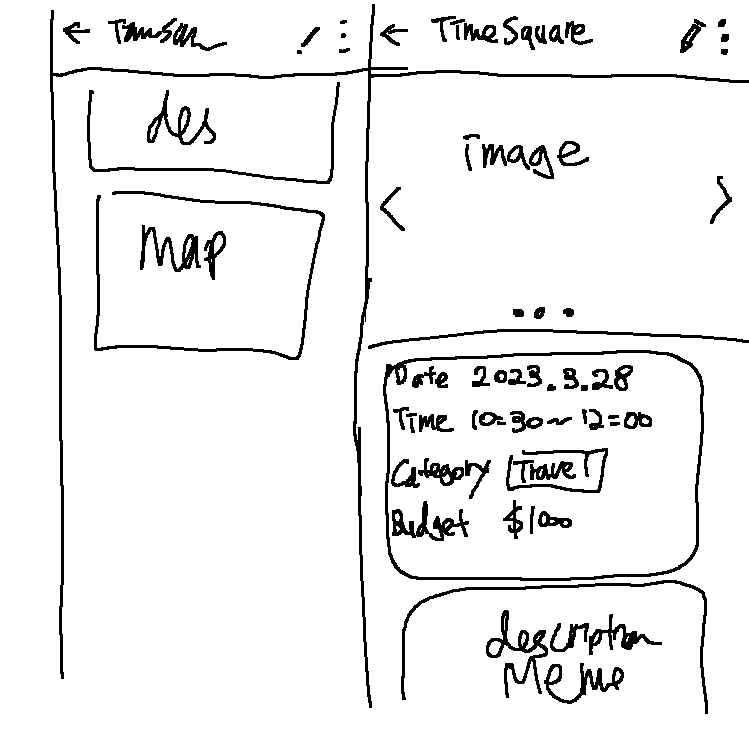 des
map
← TimeSquare
image
Date 2023.3.28
Time 10:30~12:00
Category Travel
Budget $1000
description